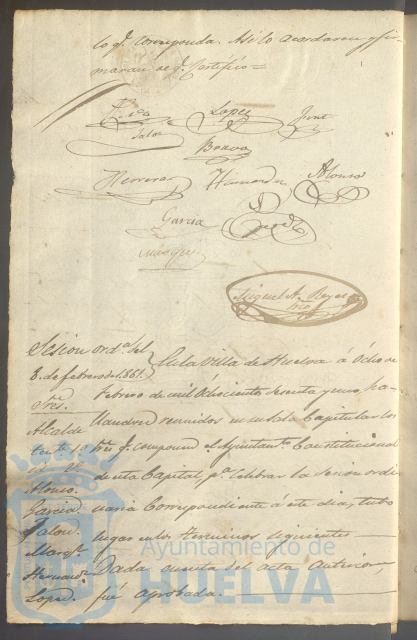 lo qe. corresponda. Asi lo acordaron y fir-
maron de qe. Certifico =
Lopez
Jalon
Bravo
Herrera Hernandez Alonso
Garcia
Marquez
Miguel A. Reyes
Srio
Sesion orda. del
8. de febrero de 1861.
Sres.
Alcalde
Tente. 1º
Alonso.
Garcia.
Jalon.
Marqz.
Hernandz.
Lopez.
En la Villa de Huelva á Ocho de
Febrero de mil Ochocientos sesenta y uno ha-
llandose reunidos en su sala Capitular los
Sres. qe. componen el Ayuntamto. Constitucional
de esta Capital pa. celebrar la sesion ordi-
naria Correspondiente á este dia, tubo
lugar en los terminos siguientes
Dada cuenta del acta anterior,
fué aprobada.
Ayuntamiento de
HUELVA